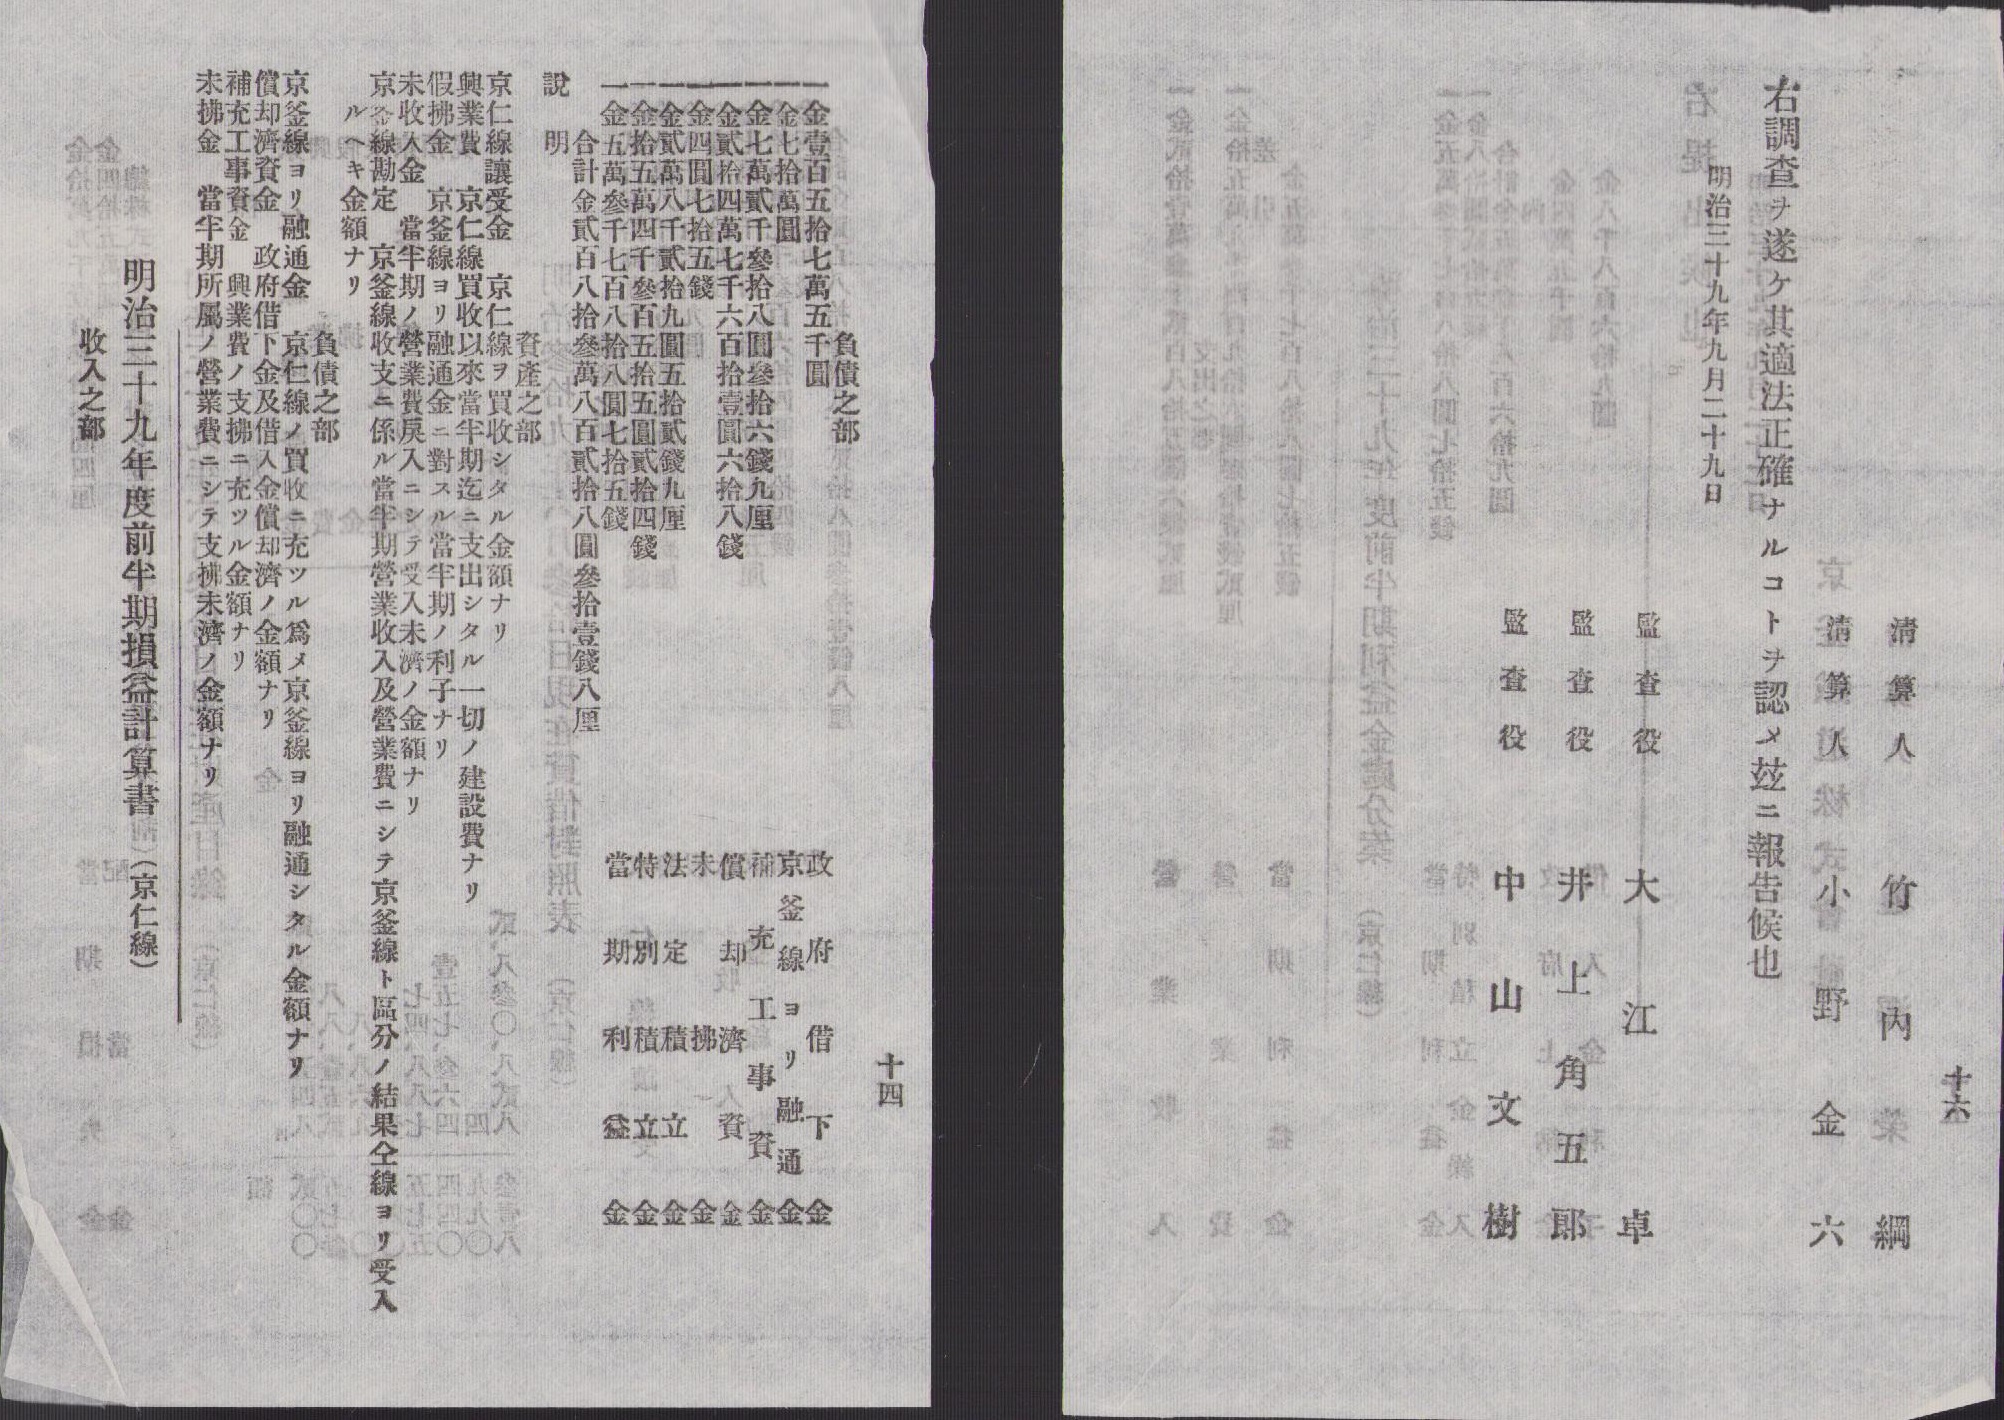 十六
淸算人 竹內綱
淸算人 小野金六
右調査ヲ遂ケ其適法正確ナルコトヲ認メ玆ニ報告候也
明治三十九年九月二十九日
監査役 大江卓
監査役 井上角五郎
監査役 中山文樹
十四
負債之部
一金壹百五拾七萬五千圓 政府借下金
一金七拾萬圓 京釜線ヨリ融通金
一金七萬貳千參拾八圓參拾六錢九厘 補充工事資金
一金貳拾四萬七千六百拾壹圓六拾八錢 償却濟資金
一金四圓七拾五錢 未拂金
一金貳萬八千貳拾九圓五拾貳錢九厘 法定積立金
一金拾五萬四千參百五拾五圓貳拾四錢 特別積立金
一金五萬參千七百八拾八圓七拾五錢 當期利益金
合計金貳百八拾參萬八百貳拾八圓參拾壹錢八厘
說明
資產之部
京仁線讓受金 京仁線ヲ買收シタル金額ナリ
興業費 京仁線買收以來當半期迄ニ支出シタル一切ノ建設費ナリ
假拂金 京釜線ヨリ融通金ニ對スル當半期ノ利子ナリ
未收入金 當半期ノ營業費戾入ニシテ受入未濟ノ金額ナリ
京釜線勘定 京釜線收支ニ係ル當半期營業收入及營業費ニシテ京釜線ト區分ノ結果仝線ヨリ受入
ルヘキ金額ナリ
負債之部
京釜線ヨリ融通金 京仁線ノ買收ニ充ツル爲メ京釜線ヨリ融通シタル金額ナリ
償却濟資金 政府借下金及借入金償却濟ノ金額ナリ
補充工事資金 興業費ノ支拂ニ充ツル金額ナリ
未拂金 當半期所屬ノ營業費ニシテ支拂未濟ノ金額ナリ
明治三十九年度前半期損益計算書(京仁線)
收入之部